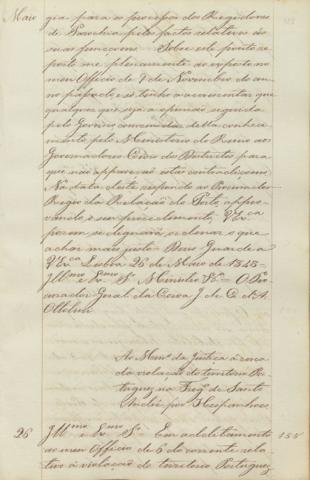 Maio
gia para os processos dos Regedores
de Parochia pelos factos relativos ás
suas funcções. Sobre este ponto re
porto me plenamente ao exposto no
meu Officio de 7 de Novembro do an
no passado, e só tenho a acrescentar que
qualquer que seja a opinião seguida
pelo Governo convem dar della conheci
mento pelo Ministerio do Reino aos
Governadores Civis de Districtos para
que não appareção estas contradicções.
Na data deste respondo ao Procurador
Regio da Relação do Porto, appro
vando o seu procedimento. V. Ex.ca
porem se dignará ordenar o que
achar mais justo. Deos Guarde a
V. Ex.ca Lisboa 26 de Maio de 1848.
Ill.mo e Ex.mo Sr. Ministro = O Pro
curador Geral da Coroa J. de C. A.
Ottolini
Ao Min.o da Justiça á cerca
da violação do territorio Por
tuguez na Freg.a de Santo
André, por Hespanhoes
26
Ill.mo e Ex.mo Sr. Em additamento
ao meu Officio de 6 do corrente rela
tivo á violação do territorio Portuguez